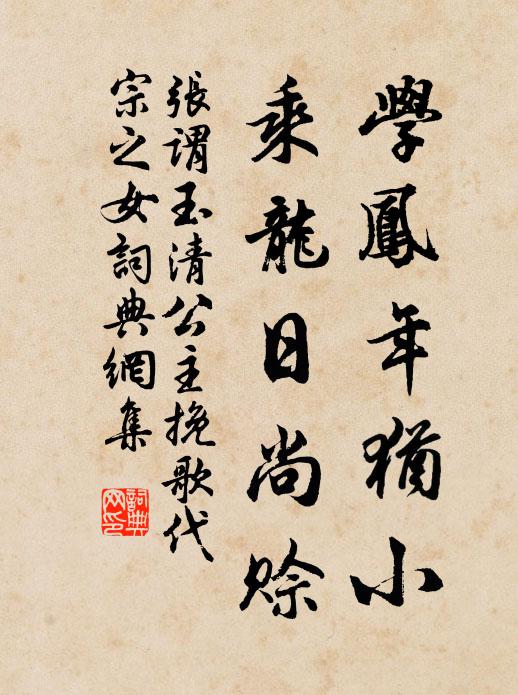 學鳳年猶小
乘龍日尚賒
張謂玉清公主挽歌代
宗之女詞典網集
詞典
网印